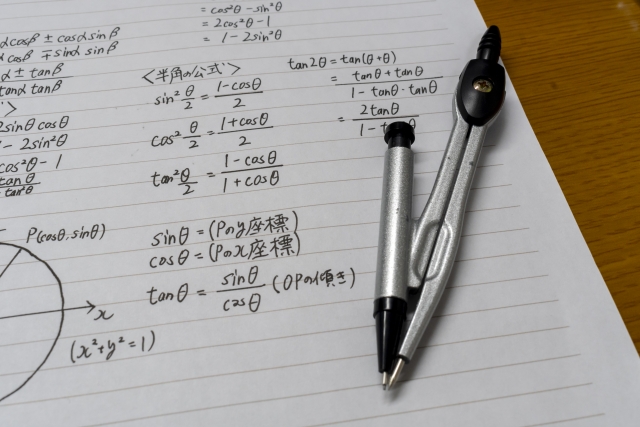 = cos²θ - sin²θ
= 2cos²θ - 1
= 1 - 2sin²θ
αcosβ ± cosα sinβ
αcosβ ∓ sinα sinβ
α ± tanβ
tanα tanβ
2sinθ cosθ
- 2sin²θ
cos²θ - 1
tanθ
tan²θ
<半角の公式>
sin² θ/2 = (1 - cosθ)/2
cos² θ/2 = (1 + cosθ)/2
tan² θ/2 = (1 - cosθ)/(1 + cosθ)
tan2θ = tan(θ + θ)
= (tanθ + tanθ)/(1 - tanθ · tanθ)
= 2tanθ/(1 - t θ)
P(cosθ, sinθ)
x
(x² + y² = 1)
sinθ = (Pのy座標)
cosθ = (Pのx座標)
tanθ = sinθ/cosθ (OPの傾き)